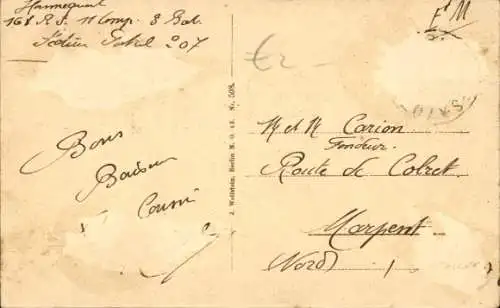 Hannequart
168 R.I. 11 Comp. 3 Bat.
Secteur Postal 207
Bons
Baisers
J. Wollstein, Berlin N. O. 43. Nr. 508.
F M
M et M Carion
Fondeur
Route de Colret
Marpent
(Nord)